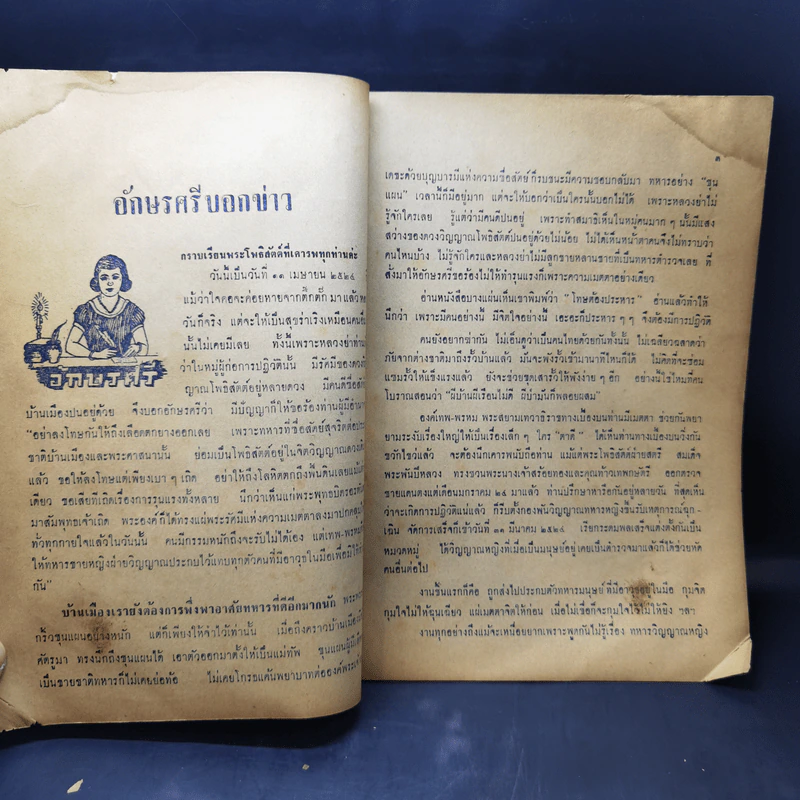 อักษรศรีบอกข่าว
กราบเรียนพระโพธิสัตต์ที่เคารพทุกท่านค่ะ
วันนี้เป็นวันที่ ๑๑ เมษายน ๒๕๒๔
แม้ว่าใจคอจะค่อยหายจากตึกตั๊ก มาแล้ว
วันก็จริง แต่จะให้เป็นสุขร่าเริงเหมือนคน
นั้นไม่เคยมีเลย ทั้งนี้เพราะหลวงย่าท่าน
ว่าในหมู่ผู้ก่อการปฏิวัตินั้น มีรัศมีของดวง
ญาณโพธิสัตต์อยู่หลายดวง มีคนดีซื่อสัตย์
อักษรศรี
บ้านเมืองปนอยู่ด้วย จึงบอกอักษรศรีว่า มีบัญญาก็ให้ขอร้องท่านผู้มีอำนาจ
"อย่าลงโทษกันให้ถึงเลือดตกยางออกเลย เพราะทหารที่ซื่อสัตย์สุจริตต่อ
ชาติบ้านเมืองและพระศาสนานั้น ย่อมเป็นโพธิสัตต์อยู่ในจิตวิญญาณดวงเดิม
แล้ว ขอให้ลงโทษแต่เพียงเบา ๆ เถิด อย่าให้ถึงโลหิตตกถึงพื้นดินเลยแม้แต่
เดียว ขอเสียทีเถิดเรื่องการรุนแรงทั้งหลาย นึกว่าเห็นแก่พระพุทธบิตร
มาสัมพุทธเจ้าเถิด พระองค์ก็ได้ทรงแผ่พระรัศมีแห่งความเมตตาลงมาปกคลุม
ทั่วทุกกายใจแล้วในวันนั้น คนมีกรรมหนักถึงจะรับไม่ได้เอง แต่เทพ-พรหม
ให้ทหารชายหญิงฝ่ายวิญญาณประกบไว้แทบทุกตัวคนที่มีอาวุธในมือเพื่อมิให้
กัน"
บ้านเมืองเรายังต้องการพึ่งพาอาศัยทหารที่ดีอีกมากนัก
กริ้วขุนแผนอย่างหนัก แต่ก็เพียงให้จำไว้เท่านั้น เมื่อถึงคราวบ้านเมือง
ศัตรูมา ทรงนึกถึงขุนแผนได้ เอาตัวออกมาตั้งให้เป็นแม่ทัพ ขุนแผนผู้มี
เป็นชายชาติทหารก็ไม่เคยย่อท้อ ไม่เคยโกรธแค้นพยาบาทต่อองค์พระ
๓
เดชะด้วยบุญบารมีแห่งความซื่อสัตย์ ก็รบชนะมีความชอบกลับมา ทหารอย่าง "ขุน
แผน" เวลานี้ก็มีอยู่มาก แต่จะให้บอกว่าเป็นใครนั้นบอกไม่ได้ เพราะหลวงย่าไม่
รู้จักใครเลย รู้แต่ว่ามีคนดีปนอยู่ เพราะทำสมาธิเห็นในหมู่คนมาก ๆ นั้นมีแสง
สว่างของดวงวิญญาณโพธิสัตต์ปนอยู่ด้วยไม่น้อย ไม่ได้เห็นหน้าตาคนจึงไม่ทราบว่า
คนไหนบ้าง ไม่รู้จักใครและหลวงย่าไม่มีลูกชายหลานชายที่เป็นทหารตำรวจเลย ที่
สั่งมาให้อักษรศรีขอร้องไม่ให้ทำรุนแรงก็เพราะความเมตตาอย่างเดียว
อ่านหนังสือบางแผ่นเห็นเขาพิมพ์ว่า "โทษต้องประหาร" อ่านแล้วทำให้
นึกว่า เพราะมีคนอย่างนี้ มีจิตใจอย่างนี้ เอะอะก็ประหาร ๆ ๆ จึงต้องมีการปฏิวัติ
คนยังอยากฆ่ากัน ไม่เอ็นดูว่าเป็นคนไทยด้วยกันทั้งนั้น ไม่เฉลียวฉลาดว่า
ภัยจากต่างชาติมาถึงรั้วบ้านแล้ว มันจะพังรั้วเข้ามานาทีไหนก็ได้ ไม่คิดที่จะซ่อม
แซมรั้วให้แข็งแรงแล้ว ยังจะช่วยขุดเสารั้วให้พังง่าย ๆ อีก อย่างนี้ใช่ไหมที่คน
โบราณสอนว่า "ผีบ้านผีเรือนไม่ดี ผีป่ามันก็พลอยผสม"
องค์เทพ-พรหม พระสยามเทวาธิราชทางเบื้องบนท่านมีเมตตา ช่วยกันพยา
ยามระงับเรื่องใหญ่ให้เป็นเรื่องเล็ก ๆ ใคร "ตาดี" ได้เห็นท่านทางเบื้องบนวิ่งกัน
ขวักไขว่แล้ว จะต้องนึกเคารพนับถือท่าน แม้แต่พระโพธิสัตต์ฝ่ายสตรี สมเด็จ
พระพันปีหลวง ทรงชวนพระนางเจ้าสร้อยทองและคุณท้าวเทพกษัตรี ออกตรวจ
ชายแดนตั้งแต่เดือนมกราคม ๒๔ มาแล้ว ท่านปรึกษาหารือกันอยู่หลายวัน ที่สุดเห็น
ว่าจะเกิดการปฏิวัติแน่แล้ว ก็รีบตั้งกองพันวิญญาณทหารหญิงขึ้นรับเหตุการณ์ฉุก-
เฉิน จัดการเสร็จก็เช้าวันที่ ๓๑ มีนาคม ๒๕๒๔ เรียกระดมพลเสร็จแต่งตั้งกันเป็น
หมวดหมู่ ให้วิญญาณหญิงที่เมื่อเป็นมนุษย์อยู่ เคยเป็นตำรวจมาแล้วก็ได้ช่วยหัด
คนอื่นต่อไป
งานชิ้นแรกก็คือ ถูกส่งไปประกบตัวทหารมนุษย์ ที่มีอาวุธอยู่ในมือ กุมจิต
กุมใจไม่ให้ฉุนเฉียว แผ่เมตตาจิตให้ก่อน เมื่อไม่เชื่อก็จะกุมใจไว้ไม่ให้ยิง ฯลฯ
งานทุกอย่างถึงแม้จะเหนื่อยยากเพราะพูดกันไม่รู้เรื่อง ทหารวิญญาณหญิง